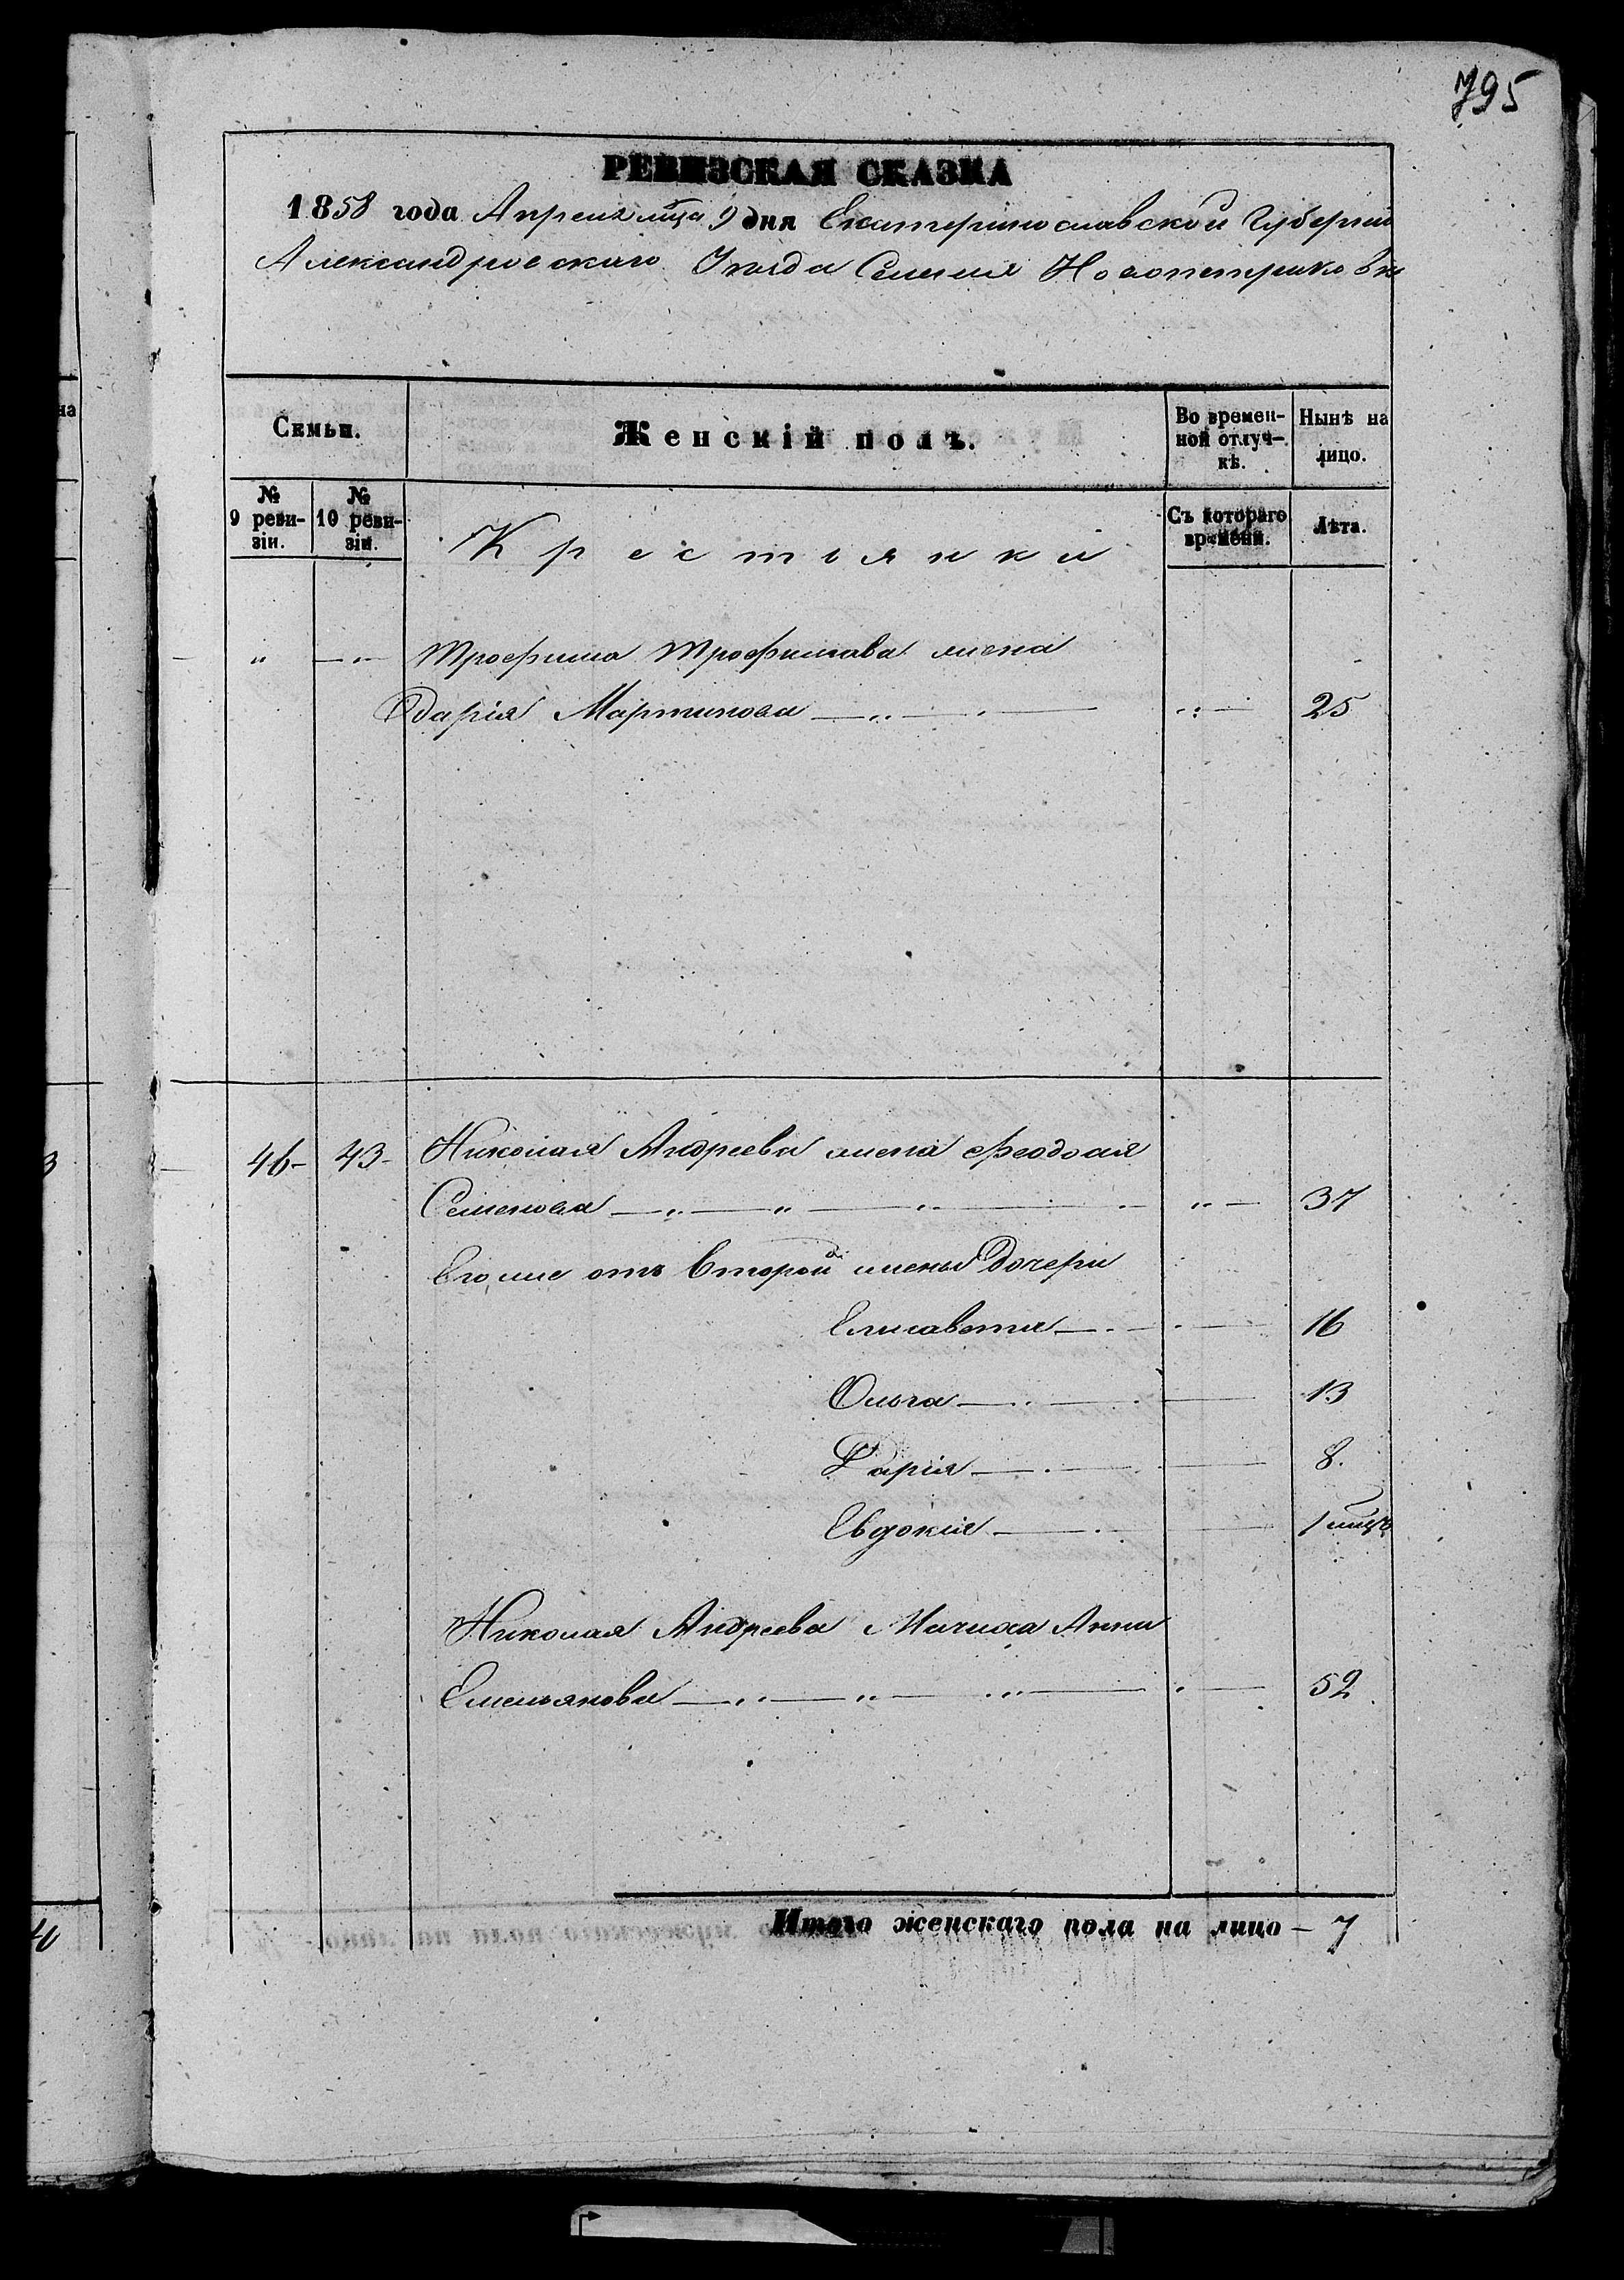 795
РЕВИЗСКАЯ СКАЗКА
1858 года Апреля мца 9 дня Екатеринославской Губернии
Александровскаго Уезда Селения Новопетриковки
на
Семьи.
Женскій полъ.
Во времен-
ной отлуч-
кѣ.
Нынѣ на
лицо.
№
9 реви-
зіи.
№
10 реви-
зіи.
Крестьянки
Съ котораго
времени.
Лѣта.
Трофима Трофимова жена
Дарія Мартинова 25
3 46 43 Николая Андреева жена Феодосія
Семенова 37
Его же отъ второй жены дочери
Елисавета 16
Ольга 13
Дарія 8.
Евдокія 1 мцъ
Николая Андреева Мачиха Анна
Емельянова 52
Итого женскаго пола на лицо — 7